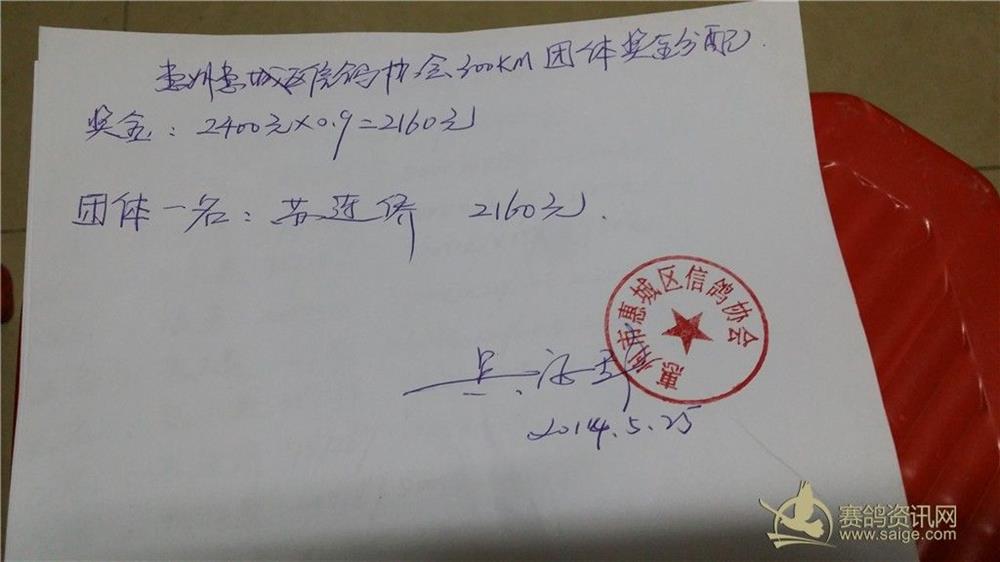 惠州惠城区信鸽协会300KM团体奖金分配
奖金：2400元×0.9=2160元
团体一名：苏连侨 2160元.
惠州市惠城区信鸽协会
2014.5.25
赛鸽资讯网
www.saige.com